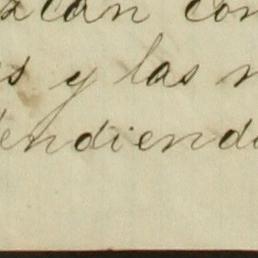 zcan con
s y las n
endiendo